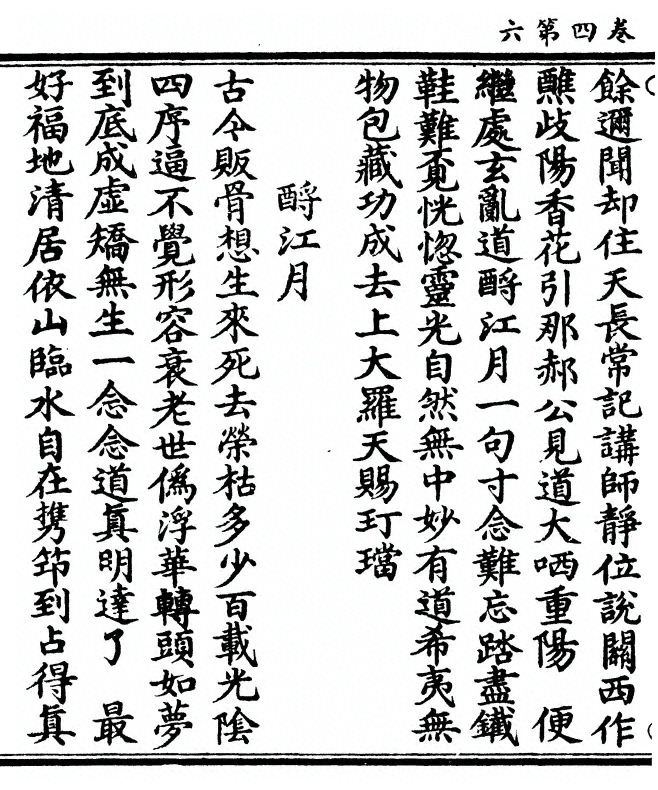 卷四第六
餘邇聞却住天長常記講師靜位說關西作
醮歧陽香花引那郝公見道大哂重陽　便
繼處玄亂道酹江月一句寸念難忘踏盡鐵
鞋難覔恍惚靈光自然無中妙有道希夷無
物包藏功成去上大羅天賜玎璫
酹江月
古今販骨想生來死去榮枯多少百載光陰
四序逼不覺形容衰老世僞浮華轉頭如夢
到底成虛矯無生一念念道眞明達了　最
好福地清居依山臨水自在携筇到占得眞